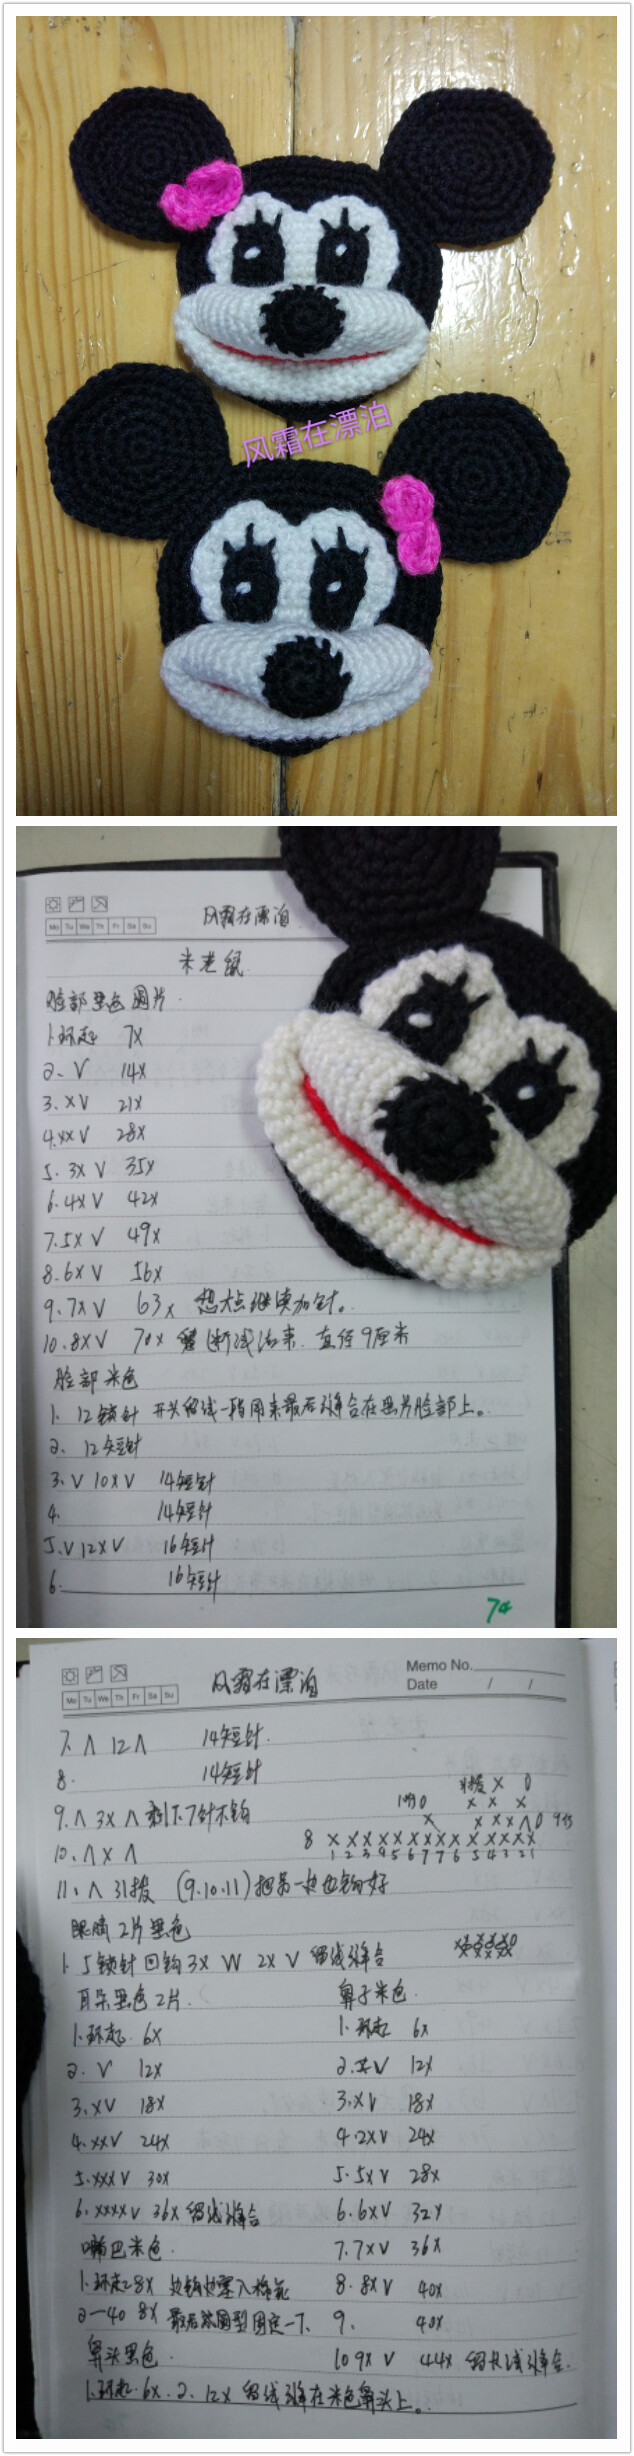 风霜在漂泊
Mo Tu We Th Fr Sa Su
风霜在漂泊
米老鼠
脸部黑色圆片.
1.环起 7X
2. V 14X
3. XV 21X
4. XX V 28X
5. 3X V 35X
6. 4X V 42X
7. 5X V 49X
8. 6X V 56X
9. 7X V 63X 想大点继续加针。
10. 8X V 70X 断线治来. 直径9厘米
脸部米色
1. 12锁针 开头留线一段用来最后缝合在黑片脸部上。
2. 12短针
3. V 10X V 14短针
4. 14短针
5. V 12X V 16短针
6. 16短针
74
风霜在漂泊
Memo No.
Date / /
Mo Tu We Th Fr Sa Su
7. Λ 12 Λ 14短针.
8. 14短针
9. Λ 3X Λ 剩下7针不钩
10. Λ X Λ
8 X X X X X X X X X X X X X X
1 2 3 4 5 6 7 7 6 5 4 3 2 1
11. Λ 引拔 (9.10.11)把另一边也钩好
眼睛2片黑色
1. 5锁针回钩3X W 2X V 留线缝合
耳朵黑色2片.
1.环起. 6X
2. V 12X
3. XV 18X
4. XXV 24X
5. XXX V 30X
6. XXXX V 36X 留线缝合
嘴巴米色.
1.环起8X 边钩边塞入棉花
2—40 8X 最后浓圆型固定一下.
鼻头黑色.
1.环起. 6X. 2. 12X 留线缝在米色鼻头上。
鼻子米色.
1. 环起 6X
2. V 12X
3. XV 18X
4. 2XV 24X
5. 5X V 28X
6. 6X V 32X
7. 7X V 36X
8. 8X V 40X
9. 40X
10 9X V 44X 留长线缝合.